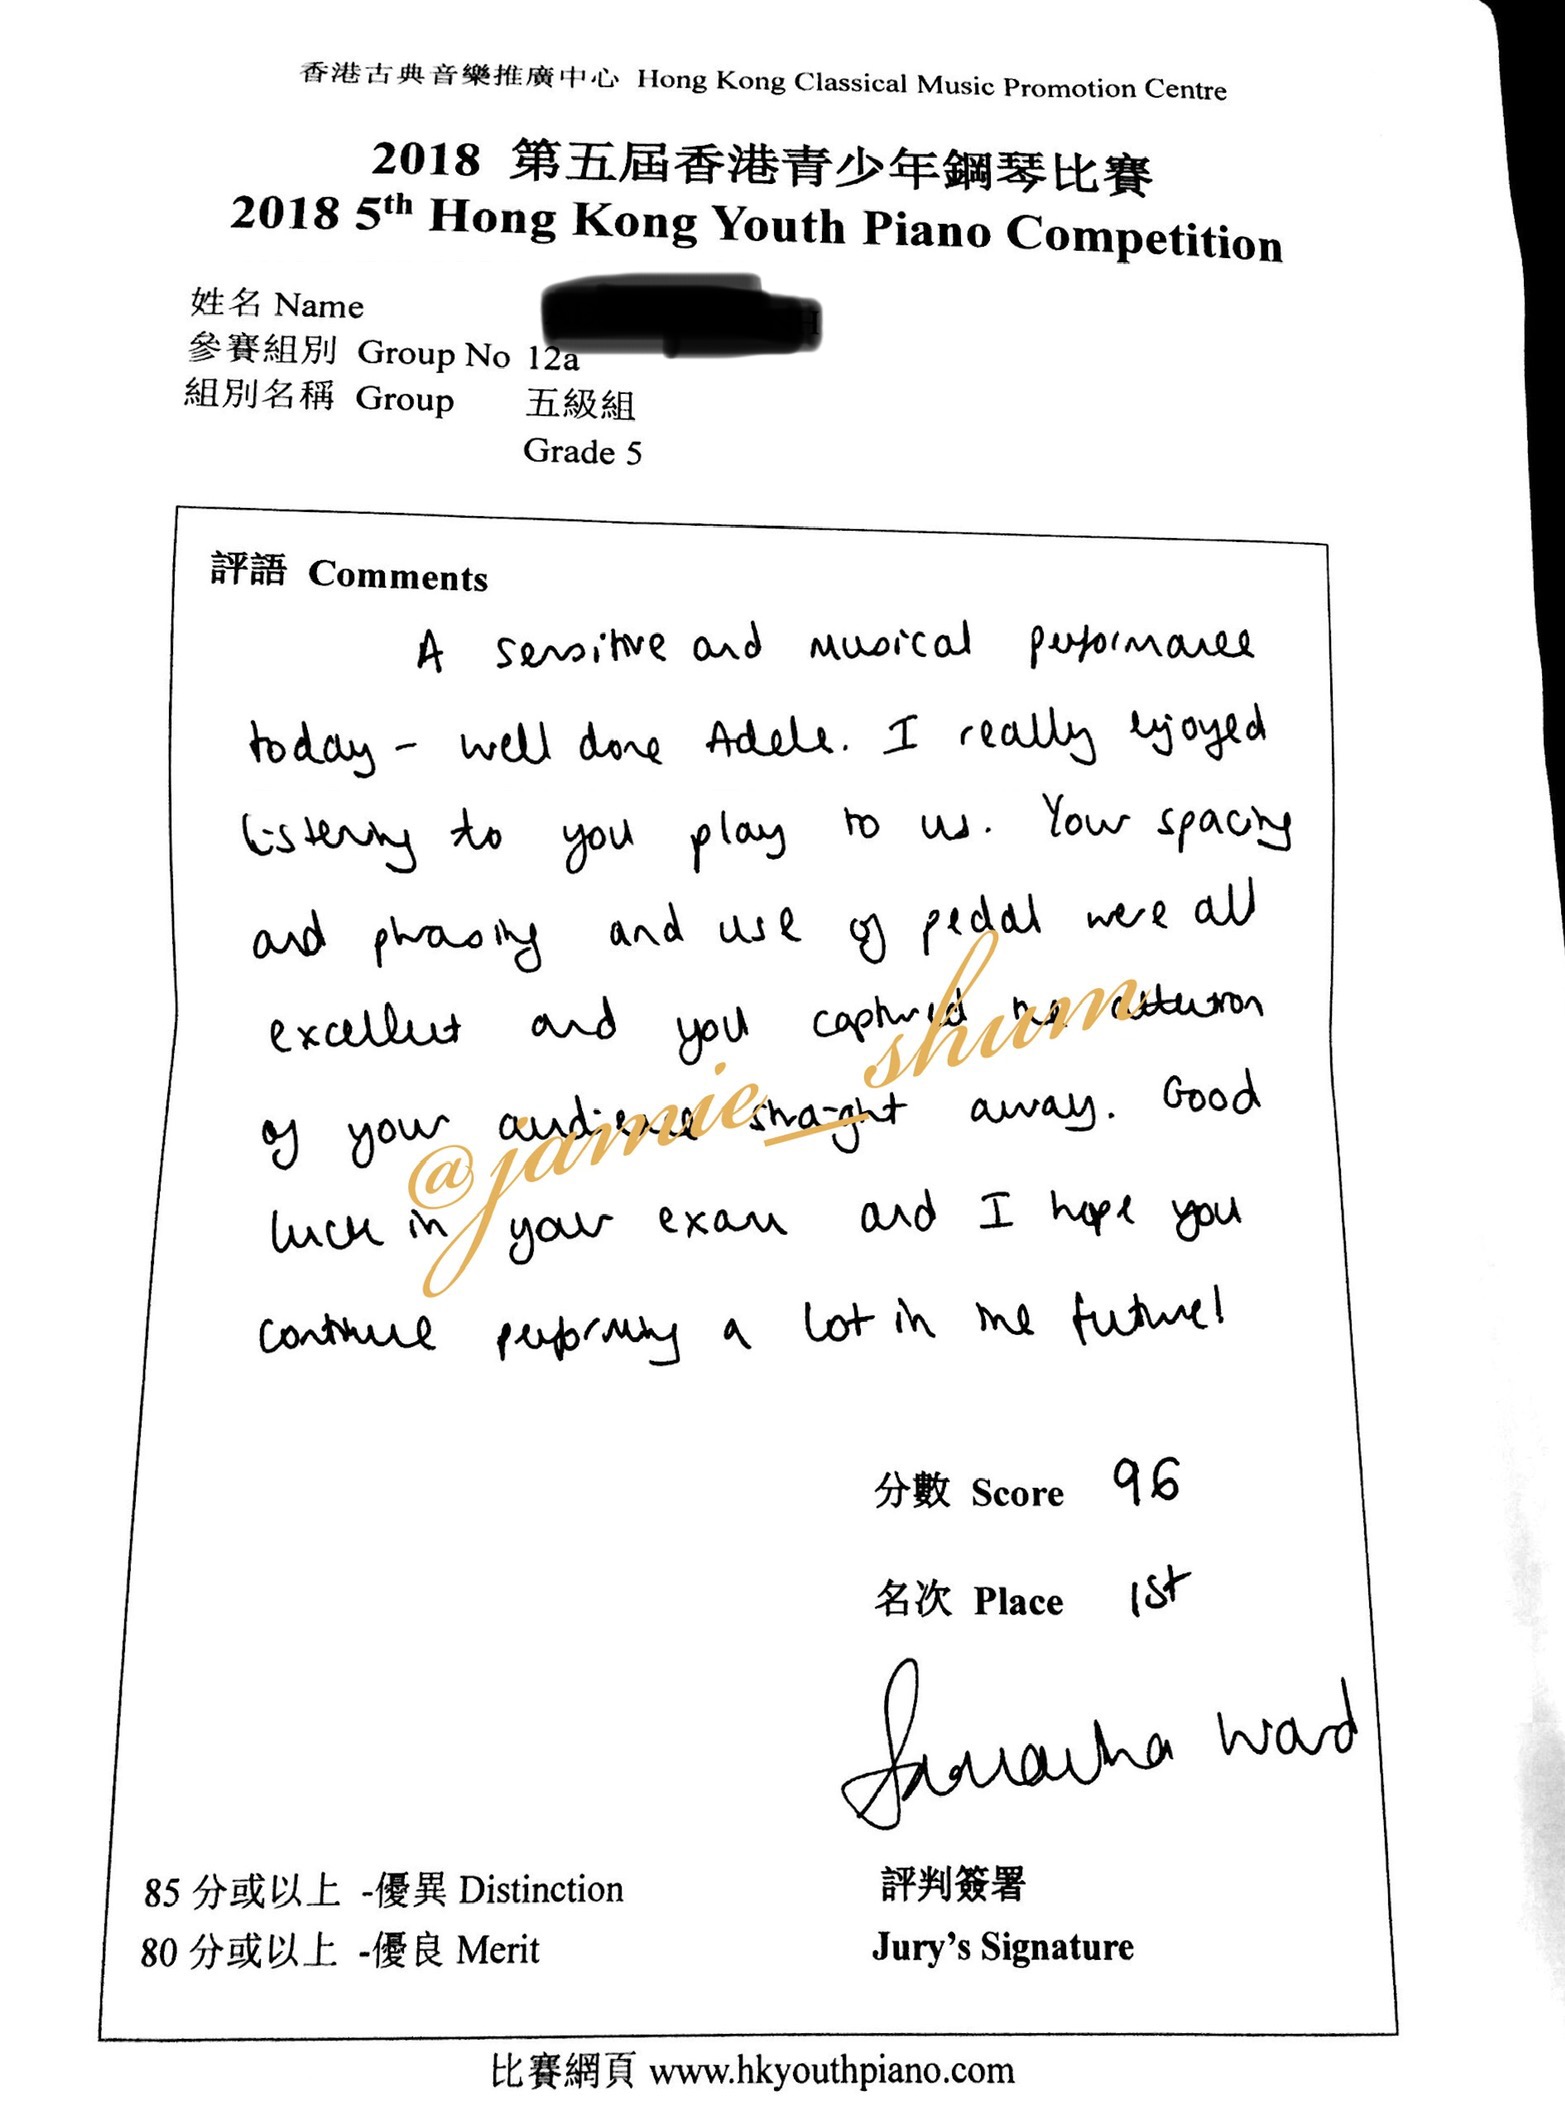 香港古典音樂推廣中心 Hong Kong Classical Music Promotion Centre
2018 第五屆香港青少年鋼琴比賽
2018 5th Hong Kong Youth Piano Competition
姓名 Name
參賽組別 Group No 12a
組別名稱 Group 五級組
Grade 5
評語 Comments
A sensitive and musical performance
today - well done Adele. I really enjoyed
listening to you play to us. Your spacing
and phrasing and use of pedal were all
excellent and you captured the attention
of your audience straight away. Good
luck in your exam and I hope you
continue performing a lot in the future!
@jamie__shum
分數 Score 96
名次 Place 1st
Samantha Ward
85 分或以上 -優異 Distinction
評判簽署
80 分或以上 -優良 Merit
Jury's Signature
比賽網頁 www.hkyouthpiano.com